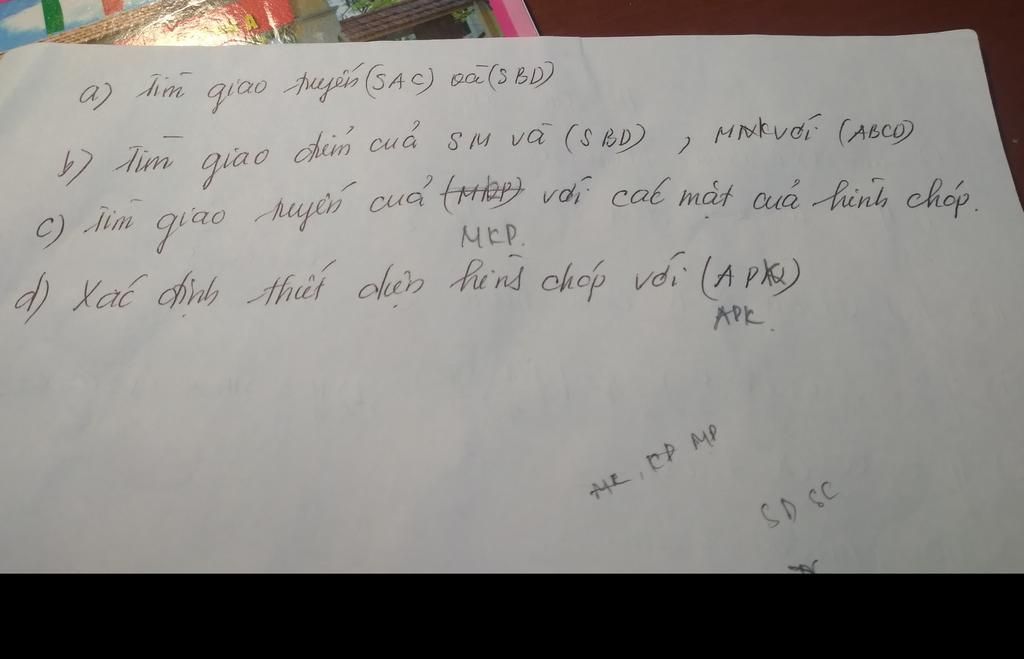 a) Tìm giao tuyến (SAC) và (SBD)
b) Tìm giao điểm của SM và (SBD), MNK với (ABCD)
c) Tìm giao tuyến của (MKP) với các mặt của hình chóp.
MKP.
d) Xác định thiết diện hình chóp với (APKQ)
APK.
MK, KP MP
SD SC